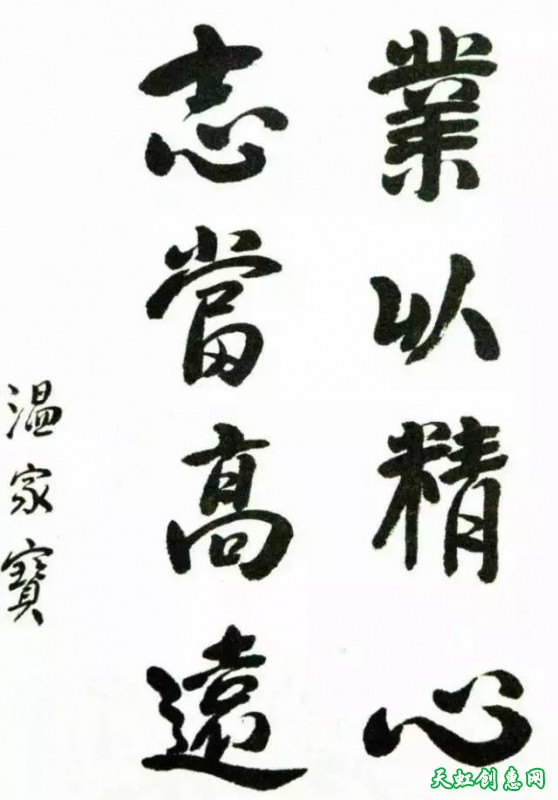 業以精心
志當高遠
溫家寶
天虹创惠网